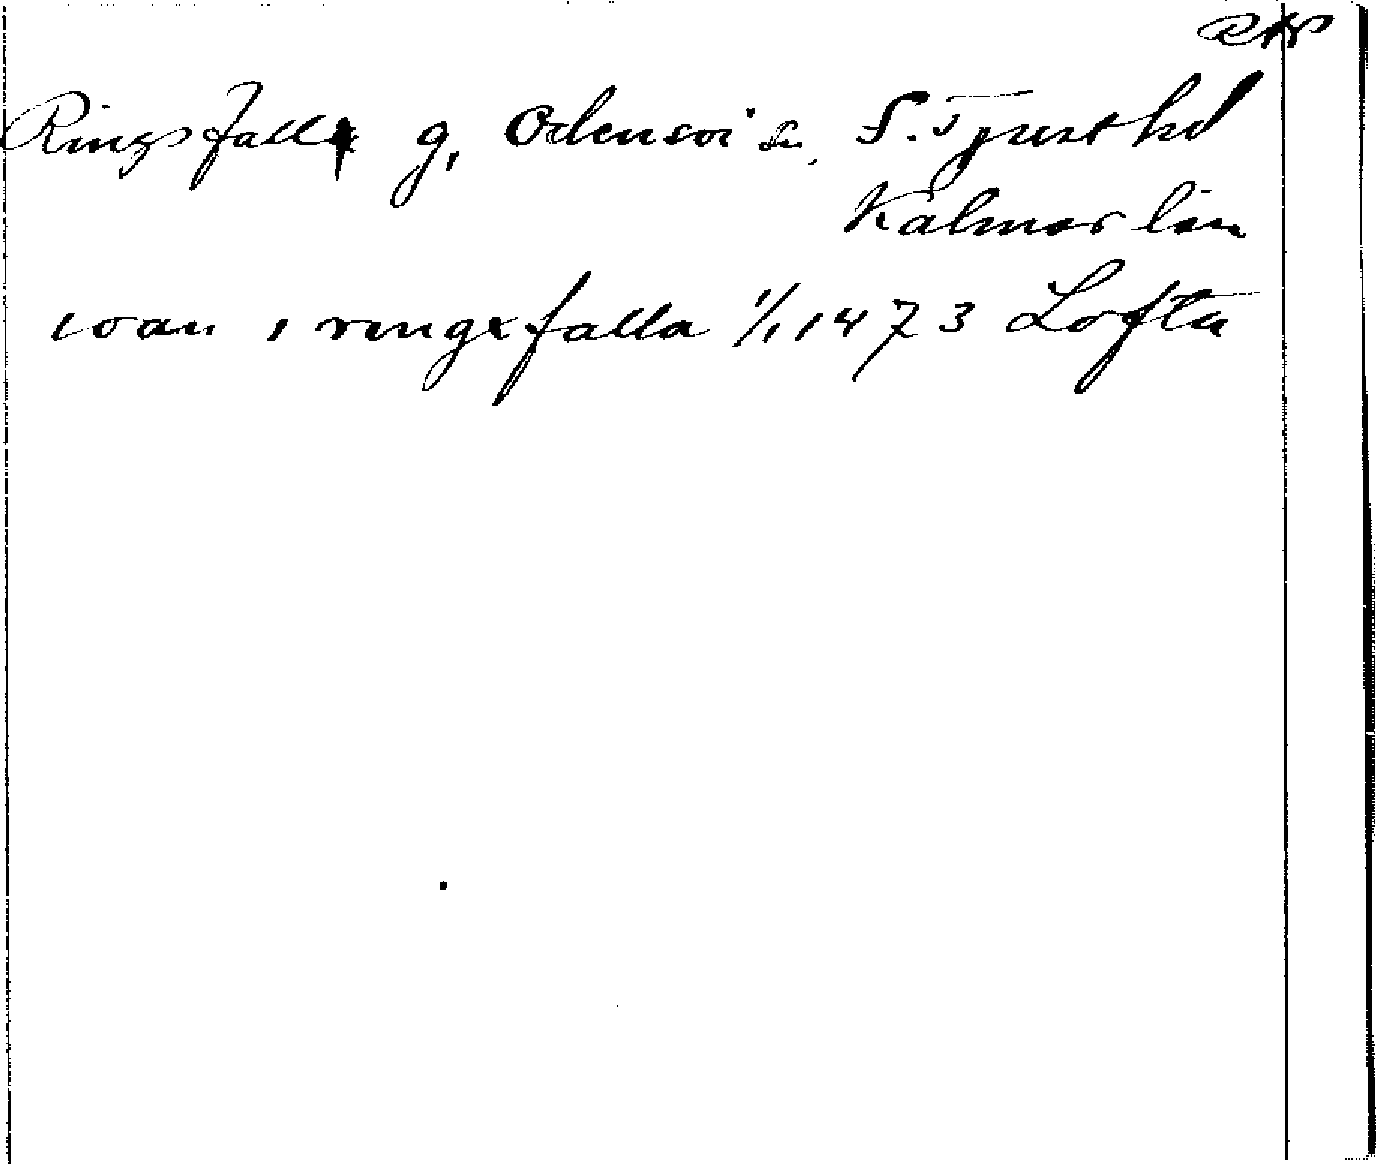 RAP
Ringsfalla g, Odensvi sn, S. Tjust hd
Kalmar län
ioan i ringxfalla 1/1 1473 Lofta